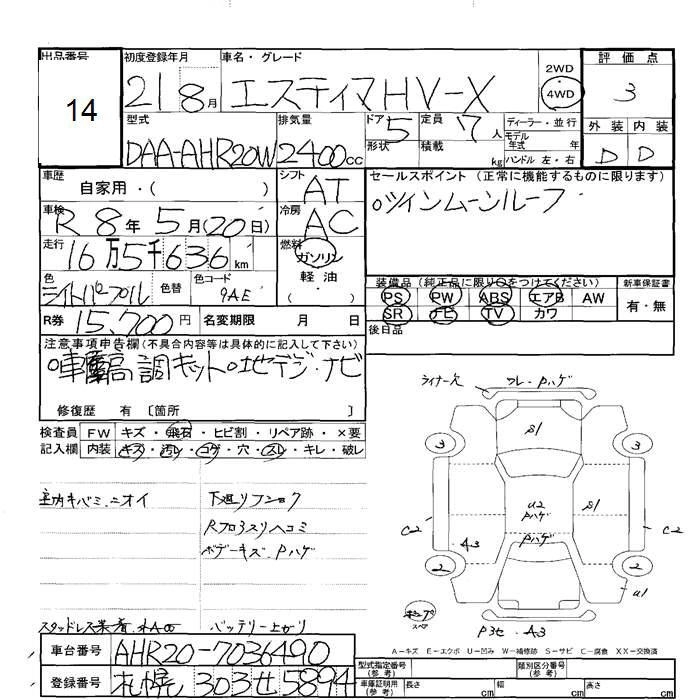 出品番号
14
初度登録年月
21 8月
車名・グレード
エスティマHV-X
2WD
4WD
評価点
3
外装 内装
D D
型式
DAA-AHR20W
排気量
2400cc
ドア 5
形状
定員 7人
積載 kg
ディーラー・並行
モデル年式 年
ハンドル 左・右
車歴
自家用・( )
シフト
AT
車検
R8年5月(20日)
冷房
AC
走行
16万5千636km
燃料
ガソリン
軽油
( ・ )
色
ライトパープル
色替
色コード
9AE
R券 15,700円
名変期限 月 日
セールスポイント (正常に機能するものに限ります)
○ツインムーンルーフ
装備品 (純正品に限り○をつけてください)
PS PW ABS エアB AW
SR ナビ TV カワ
新車保証書
有・無
後日品
注意事項申告欄(不具合内容等は具体的に記入して下さい)
○車高調キット○地デジ・ナビ
修復歴 有 〔箇所 〕
検査員記入欄
FW キズ・飛石・ヒビ割・リペア跡・×要
内装 キズ・汚レ・コゲ・穴・スレ・キレ・破レ
内キバミ、ニオイ
下廻リフショク
Rフロアスリヘコミ
ボデーキズ、Pハゲ
スタッドレス装着
バッテリー上がり
ライナー欠
フレ・Pハゲ
S1
3
3
C2
U2
Pハゲ
S1
C2
Pハゲ
A3
2
2
U1
スペア
A3
A-キズ E-エクボ U-凹み W-補修跡 S-サビ C-腐食 XX-交換済
車台番号
AHR20-7036490
登録番号
札幌 303 せ 5894
型式指定番号(参考)
類別区分番号(参考)
車庫証明用(参考)
長さ cm
幅 cm
高さ cm